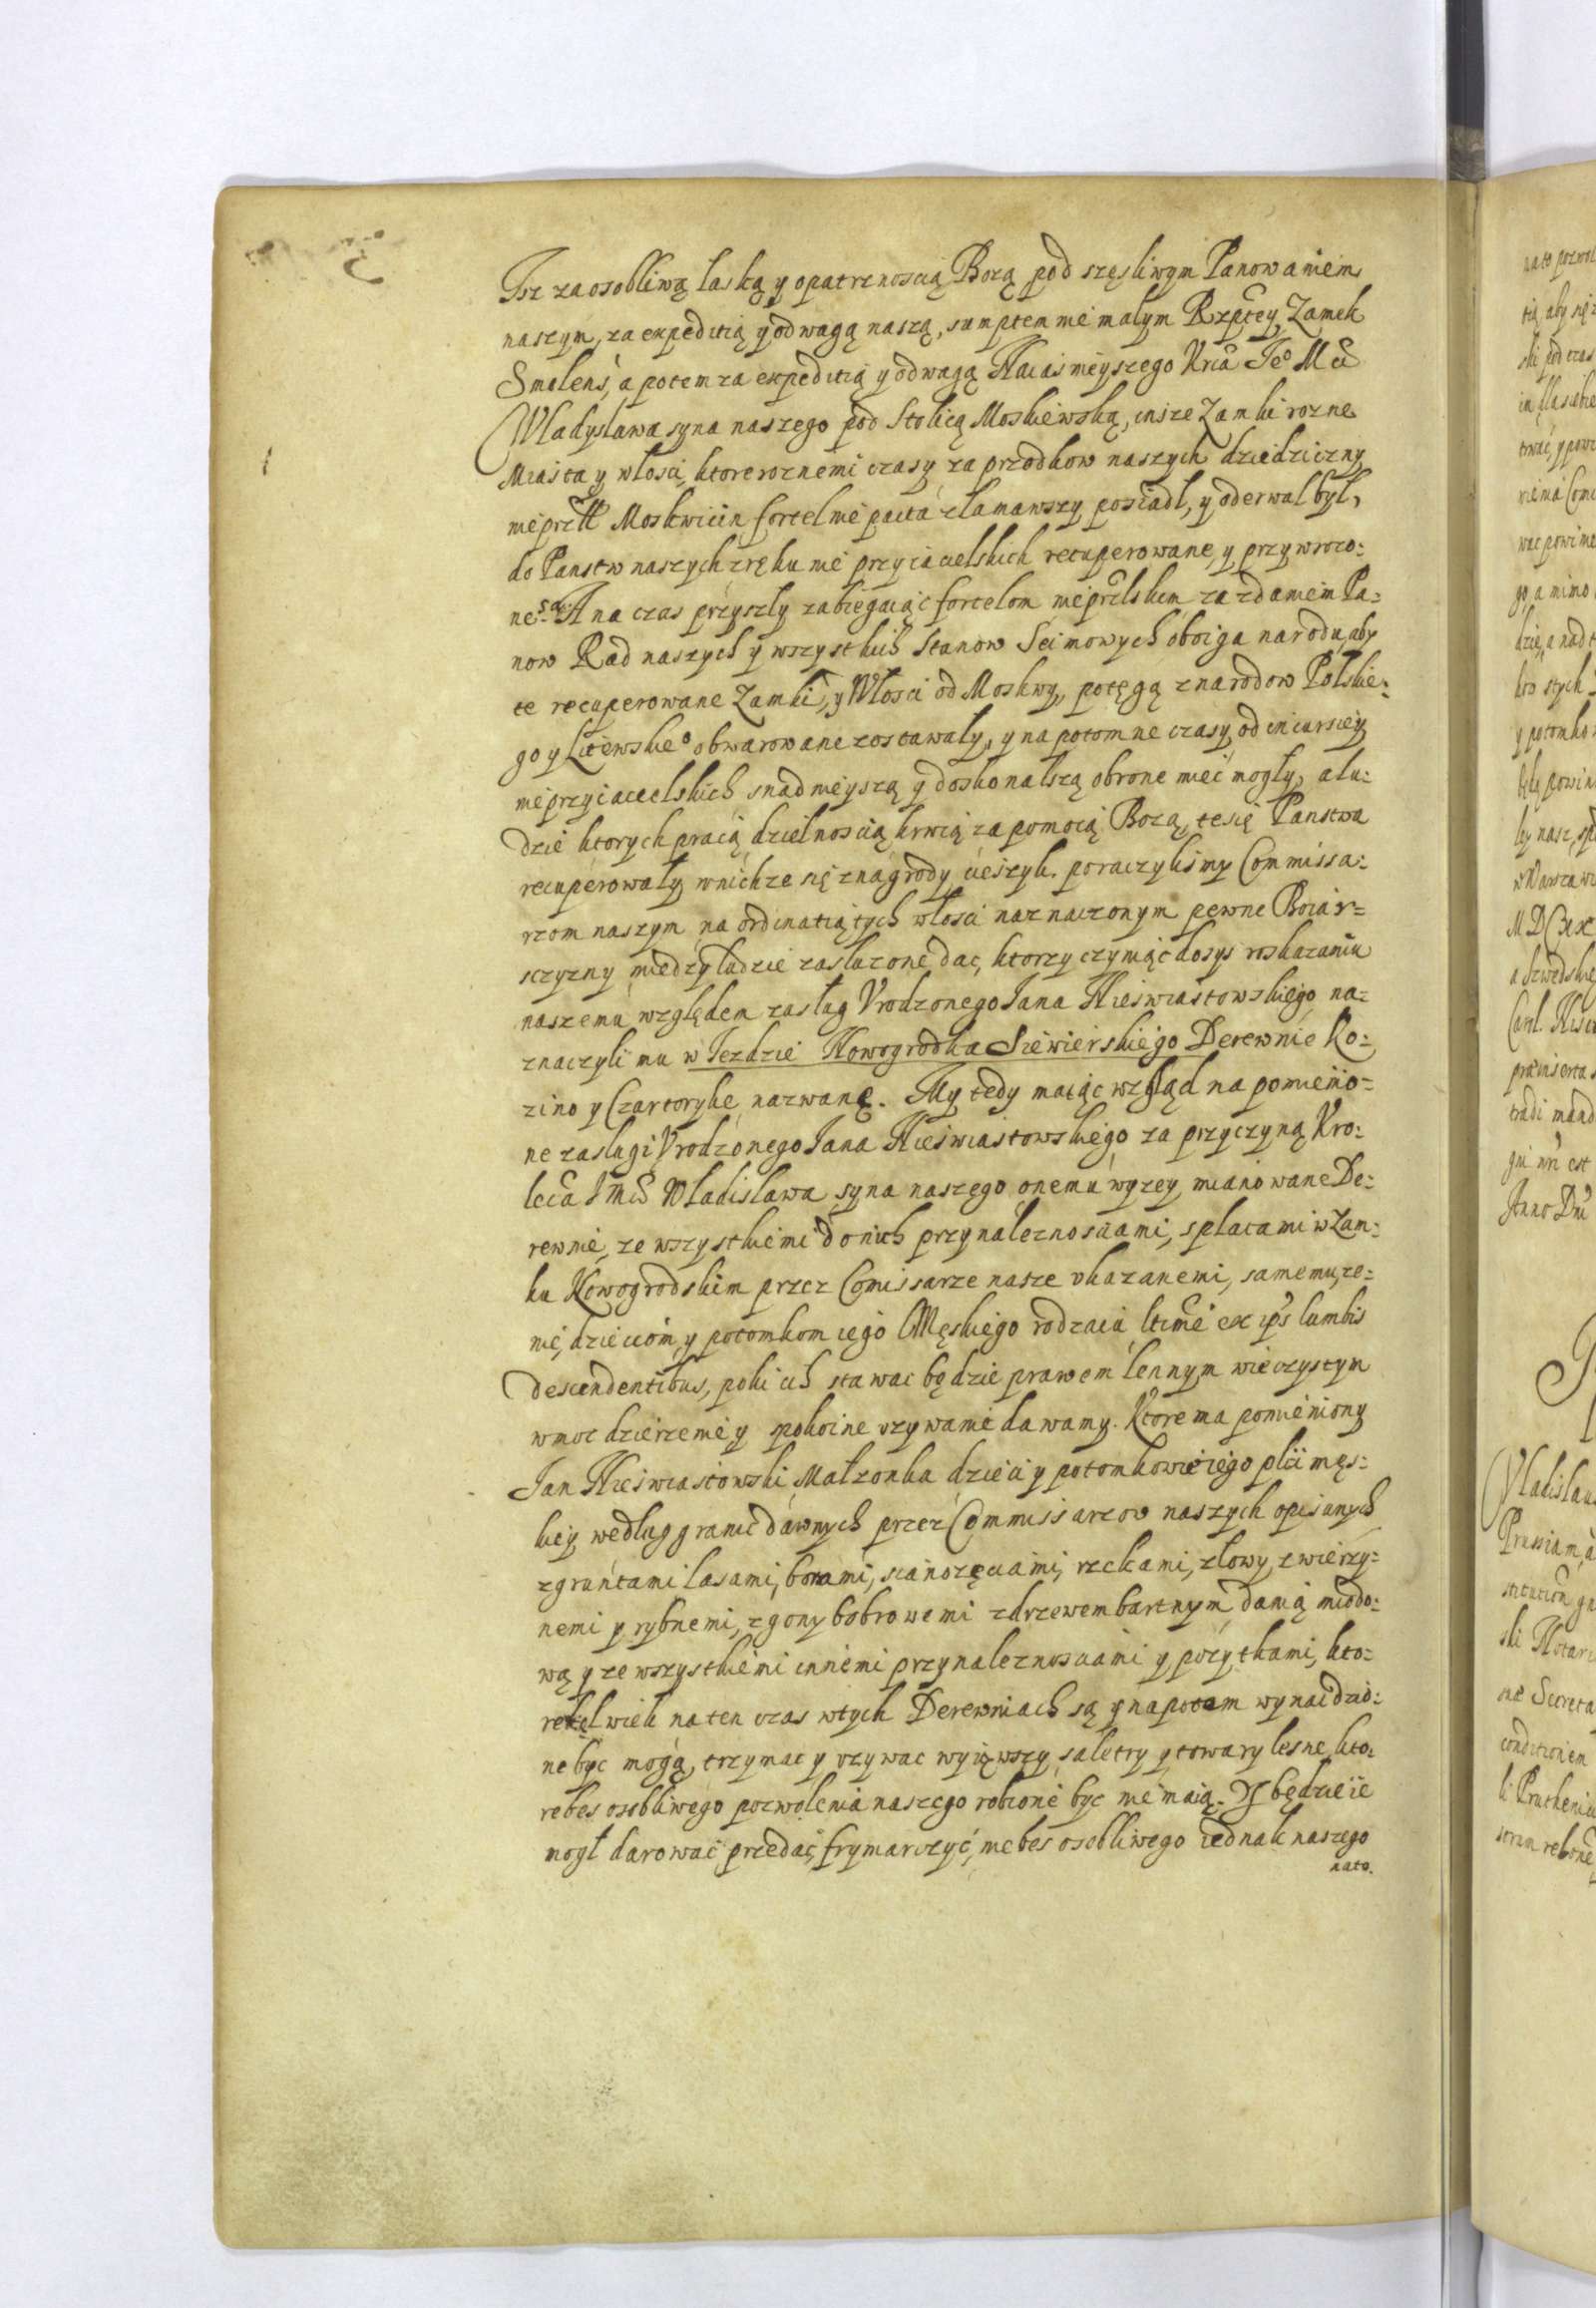 Isz za osobliwą łaską y opatrznoscią Bozą pod szęsliwym Panowaniem
naszym, za expeditią y odwagą naszą, sumptem nie małym Rzptey, Zamek
Smolens, a potem za expeditią y odwagą Naiasnieyszego Krca Jeo Mci
Władysława syna naszego pod Stolicą Moskiewską, insze Zamki rozne
Miasta y włosci, ktore roznemi czasy za przodkow naszych dziedziczny
nieprzll Moskwicin fortelnie pacta złamawszy posiadł, y oderwal był,
do Panstw naszych z ręku nie przyiacielskich recuperowane, y przywroco:
ne są. A na czas przyszły zabiegaiąc fortelom nieprzlskim za zdaniem Pa:
now Rad naszych y wszystkich Stanow Seimowych oboiga narodu, aby
te recuperowane Zamki, y Włosci od Moskwy, potęgą z narodow Polskie:
go y Litewskieo obwarowane zostawały, y na potomne czasy od incursiey
nieprzyiacielskich snadnieyszą y doskonalszą obrone miec mogły, a lu:
dzie ktorych pracią dzielnoscią krwią za pomocią Bozą, te się Panstwa
recuperowały w nichze się znagrody cieszyli. poraczylismy Commissa:
rzom naszym na ordinatią tych włosci naznaczonym pewne Boiar=
sczyzny między ludzie zasluzone dac, ktorzy czyniąc dosys roskazaniu
naszemu względem zasług Vrodzonego Jana Nieswiastowskiego na=
znaczyli mu w Jezdzie Nowogrodka Siewierskiego Derewnie Ko:
zino y Czartorykę nazwanę. My tedy maiąc wzgląd na pomienio=
ne zasługi Vrodzonego Jana Nieswiastowskiego za przyczyną Kro:
lca JMci Władislawa syna naszego onemu wyzey mianowane De:
rewnie, ze wszystkiemi do nich przynaleznosciami, s placami w Zam:
ku Nowogrodskim przez Comissarze nasze vkazanemi, samemu, zo=
nie, dzieciom, y potomkom iego Męskiego rodzaiu ltime ex ips lumbis
descendentibus, poki ich stawac będzie prawem lennym wieczystym
w moc dzierzenie y spokoine vzywanie dawamy. Ktore ma pomieniony
Jan Nieswiastowski Małzonka dzieci y potomkowie iego plci męs:
kiey według granic dawnych przez Commissarzow naszych opisanych
z gruntami lasami, borami, sianozęciami, rzekami, z łowy, zwierzy=
nemi y rybnemi, z gony bobrowemi z drzewem bartnym danią miodo:
wą y ze wszystkiemi innemi przynaleznosciami y pozytkami, kto:
rekęlwiek na ten czas w tych Derewniach są y napotam wynaidzio:
ne byc mogą, trzymac y vzywac wyiąwszy saletry y towary lesne kto:
re bes osobliwego pozwolenia naszego robione byc nie maią. Y będzie ie
mogł darowac przedac, frymarczyc, nie bes osobliwego iednak naszego
nato.